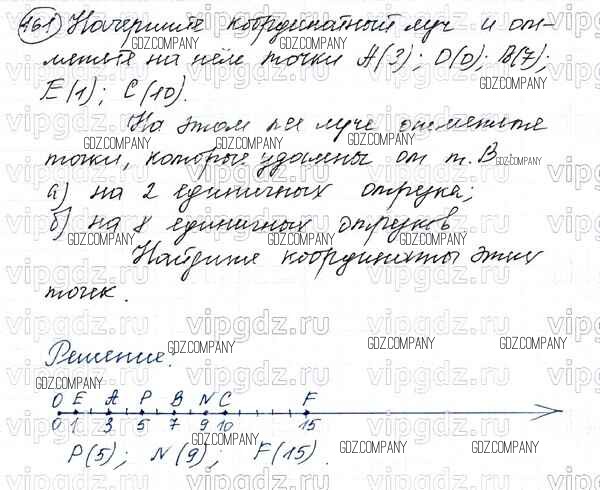 461) Начертите координатный луч и от-
метьте на нём точки A(3); O(0); B(7);
E(1); C(10).
На этом же луче отметьте
точки, которые удалены от т. B:
а) на 2 единичных отрезка;
б) на 8 единичных отрезков
Найдите координаты этих
точек.
Решение:
O E A P B N C F
0 1 3 5 7 9 10 15
P(5); N(9); F(15).
GDZ.COMPANY
vipgdz.ru